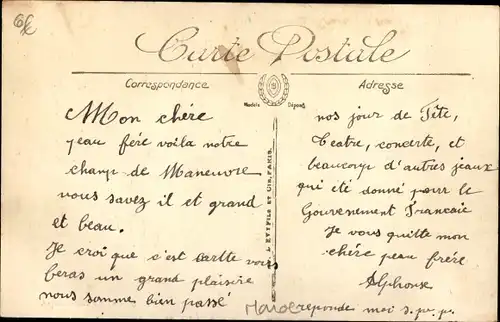 Carte Postale
Correspondance
Adresse
Modèle Déposé
L'EVY FILS ET CIE, PARIS.
Mon chére
peau fére voila notre
champ de Maneuvre
vous savez il et grand
et beau.
Je croi que c'est cartte vous
beras un grand plaisire
nous somme bien passé
nos jour de Fête,
Teatre, concerte, et
beaucoup d'autres jeaux
qui été donné pour le
Gouvenement Francaie
Je vous quitte mon
chére peau frére
Alphonse
reponde moi s.p.p.